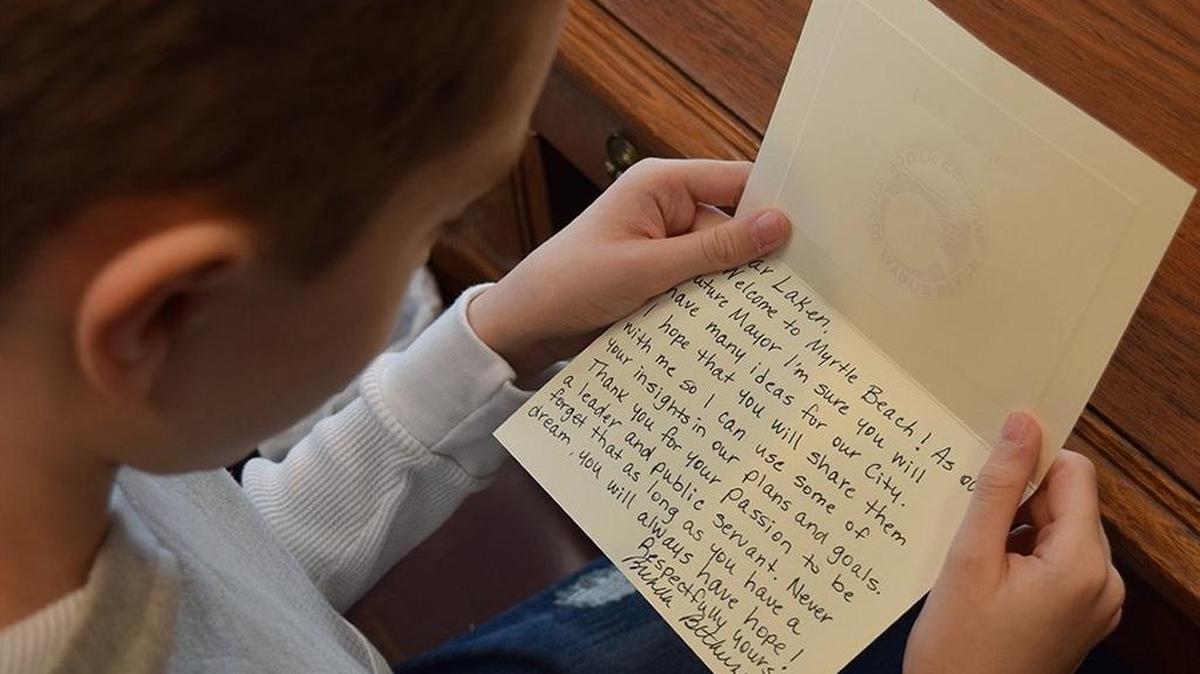 ar Laken,
Welcome to Myrtle Beach! As ou
uture Mayor I'm sure you will
have many ideas for our City.
I hope that you will share them
with me so I can use some of
your insights in our plans and goals.
Thank you for your passion to be
a leader and public servant. Never
forget that as long as you have a
dream, you will always have hope!
Respectfully yours,